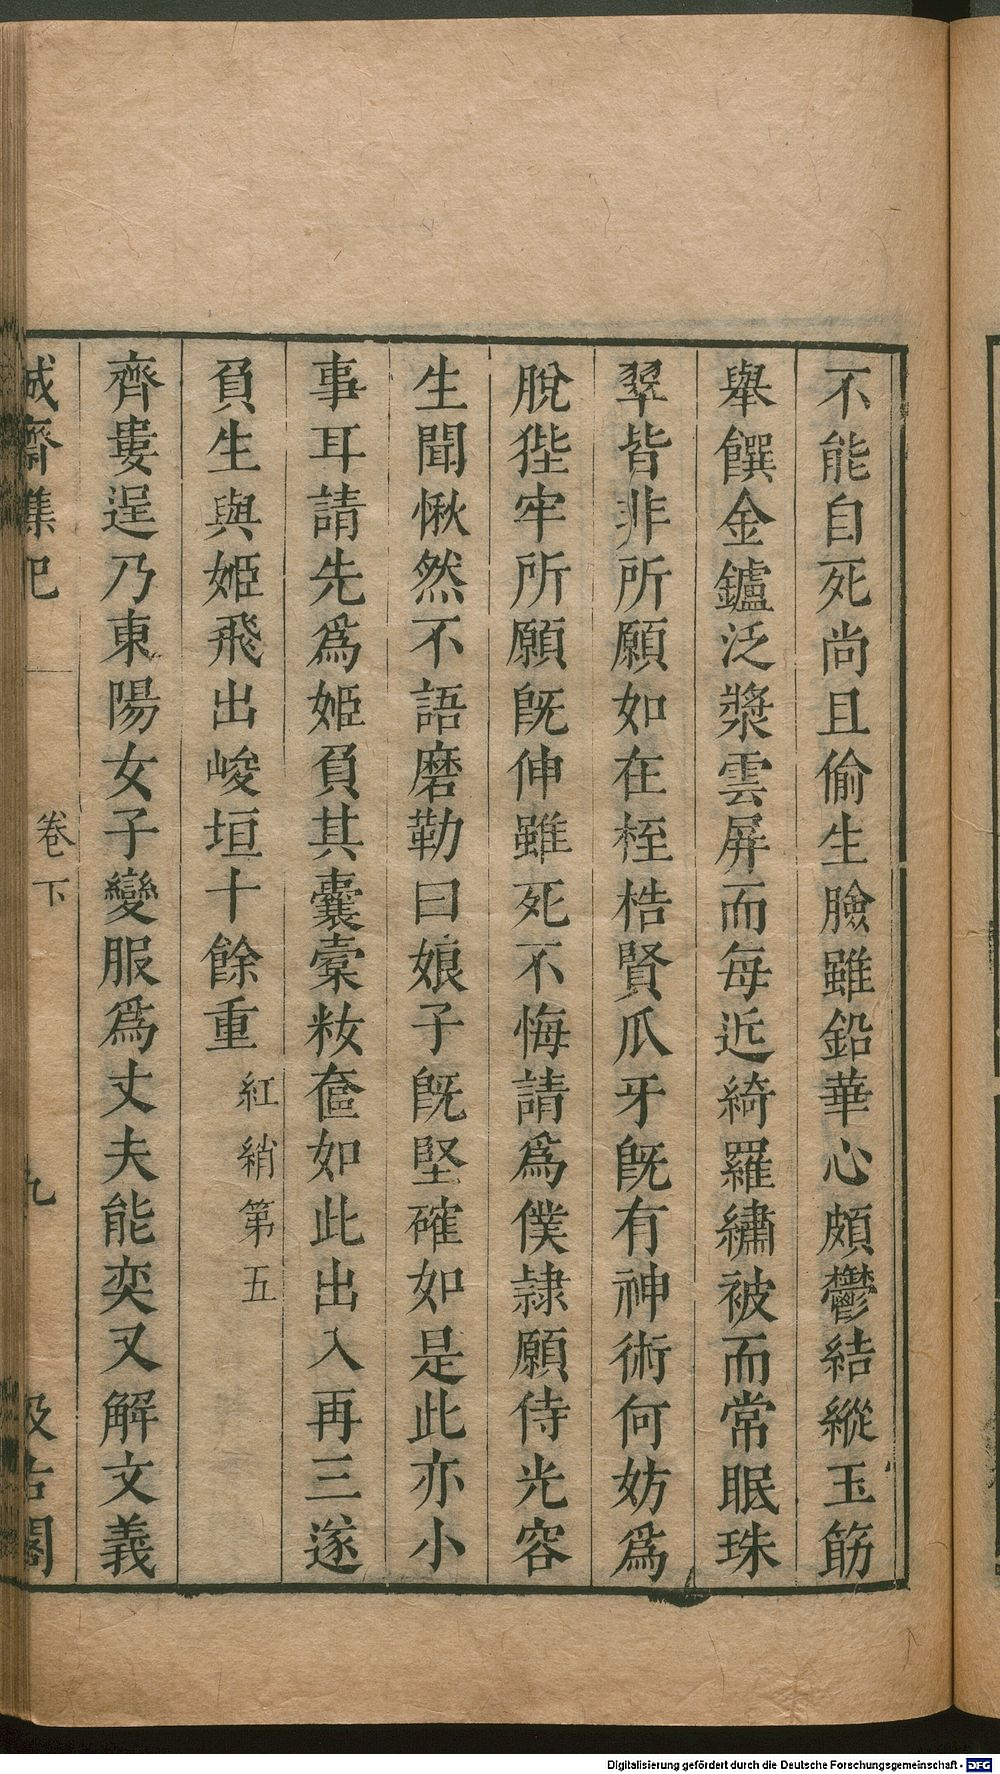 不能自死尚且偷生臉雖鉛華心頗鬱結縱玉筯
舉饌金鑪泛漿雲屏而每近綺羅繡被而常眠珠
翠皆非所願如在桎梏賢爪牙既有神術何妨爲
脫狴牢所願既伸雖死不悔請爲僕隷願侍光容
生聞愀然不語磨勒曰娘子既堅確如是此亦小
事耳請先爲姬負其囊橐粧奩如此出入再三遂
負生與姬飛出峻垣十餘重紅綃第五
齊婁逞乃東陽女子變服爲丈夫能奕又解文義
誠齋集記 卷下 九 汲古閣
Digitalisierung gefördert durch die Deutsche Forschungsgemeinschaft - DFG